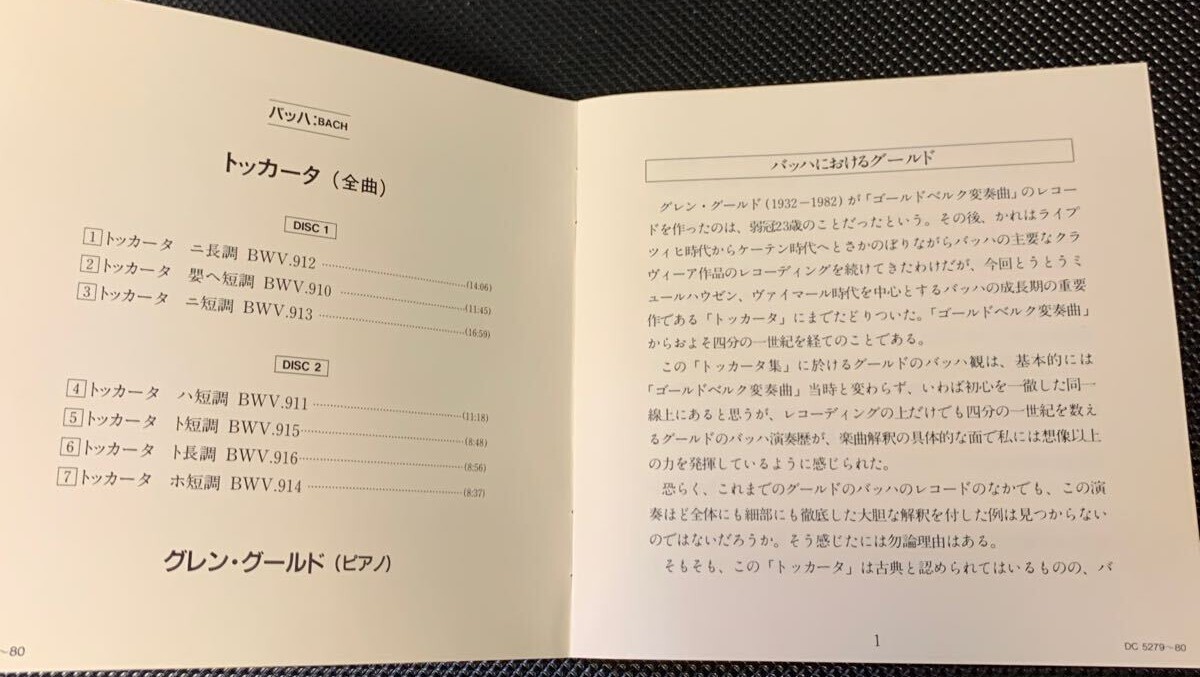 バッハ:BACH
トッカータ（全曲）
DISC 1
1 トッカータ ニ長調 BWV.912 (14:06)
2 トッカータ 嬰ヘ短調 BWV.910 (11:45)
3 トッカータ ニ短調 BWV.913 (16:59)
DISC 2
4 トッカータ ハ短調 BWV.911 (11:18)
5 トッカータ ト短調 BWV.915 (8:48)
6 トッカータ ト長調 BWV.916 (8:56)
7 トッカータ ホ短調 BWV.914 (8:37)
グレン・グールド（ピアノ）
～80
バッハにおけるグールド
グレン・グールド(1932−1982)が「ゴールドベルク変奏曲」のレコー
ドを作ったのは、弱冠23歳のことだったという。その後、かれはライプ
ツィヒ時代からケーテン時代へとさかのぼりながらバッハの主要なクラ
ヴィーア作品のレコーディングを続けてきたわけだが、今回とうとうミ
ュールハウゼン、ヴァイマール時代を中心とするバッハの成長期の重要
作である「トッカータ」にまでたどりついた。「ゴールドベルク変奏曲」
からおよそ四分の一世紀を経てのことである。
この「トッカータ集」に於けるグールドのバッハ観は、基本的には
「ゴールドベルク変奏曲」当時と変わらず、いわば初心を一徹した同一
線上にあると思うが、レコーディングの上だけでも四分の一世紀を数え
るグールドのバッハ演奏歴が、楽曲解釈の具体的な面で私には想像以上
の力を発揮しているように感じられた。
恐らく、これまでのグールドのバッハのレコードのなかでも、この演
奏ほど全体にも細部にも徹底した大胆な解釈を付した例は見つからない
のではないだろうか。そう感じたには勿論理由はある。
そもそも、この「トッカータ」は古典と認められてはいるものの、バ
1
DC 5279～80